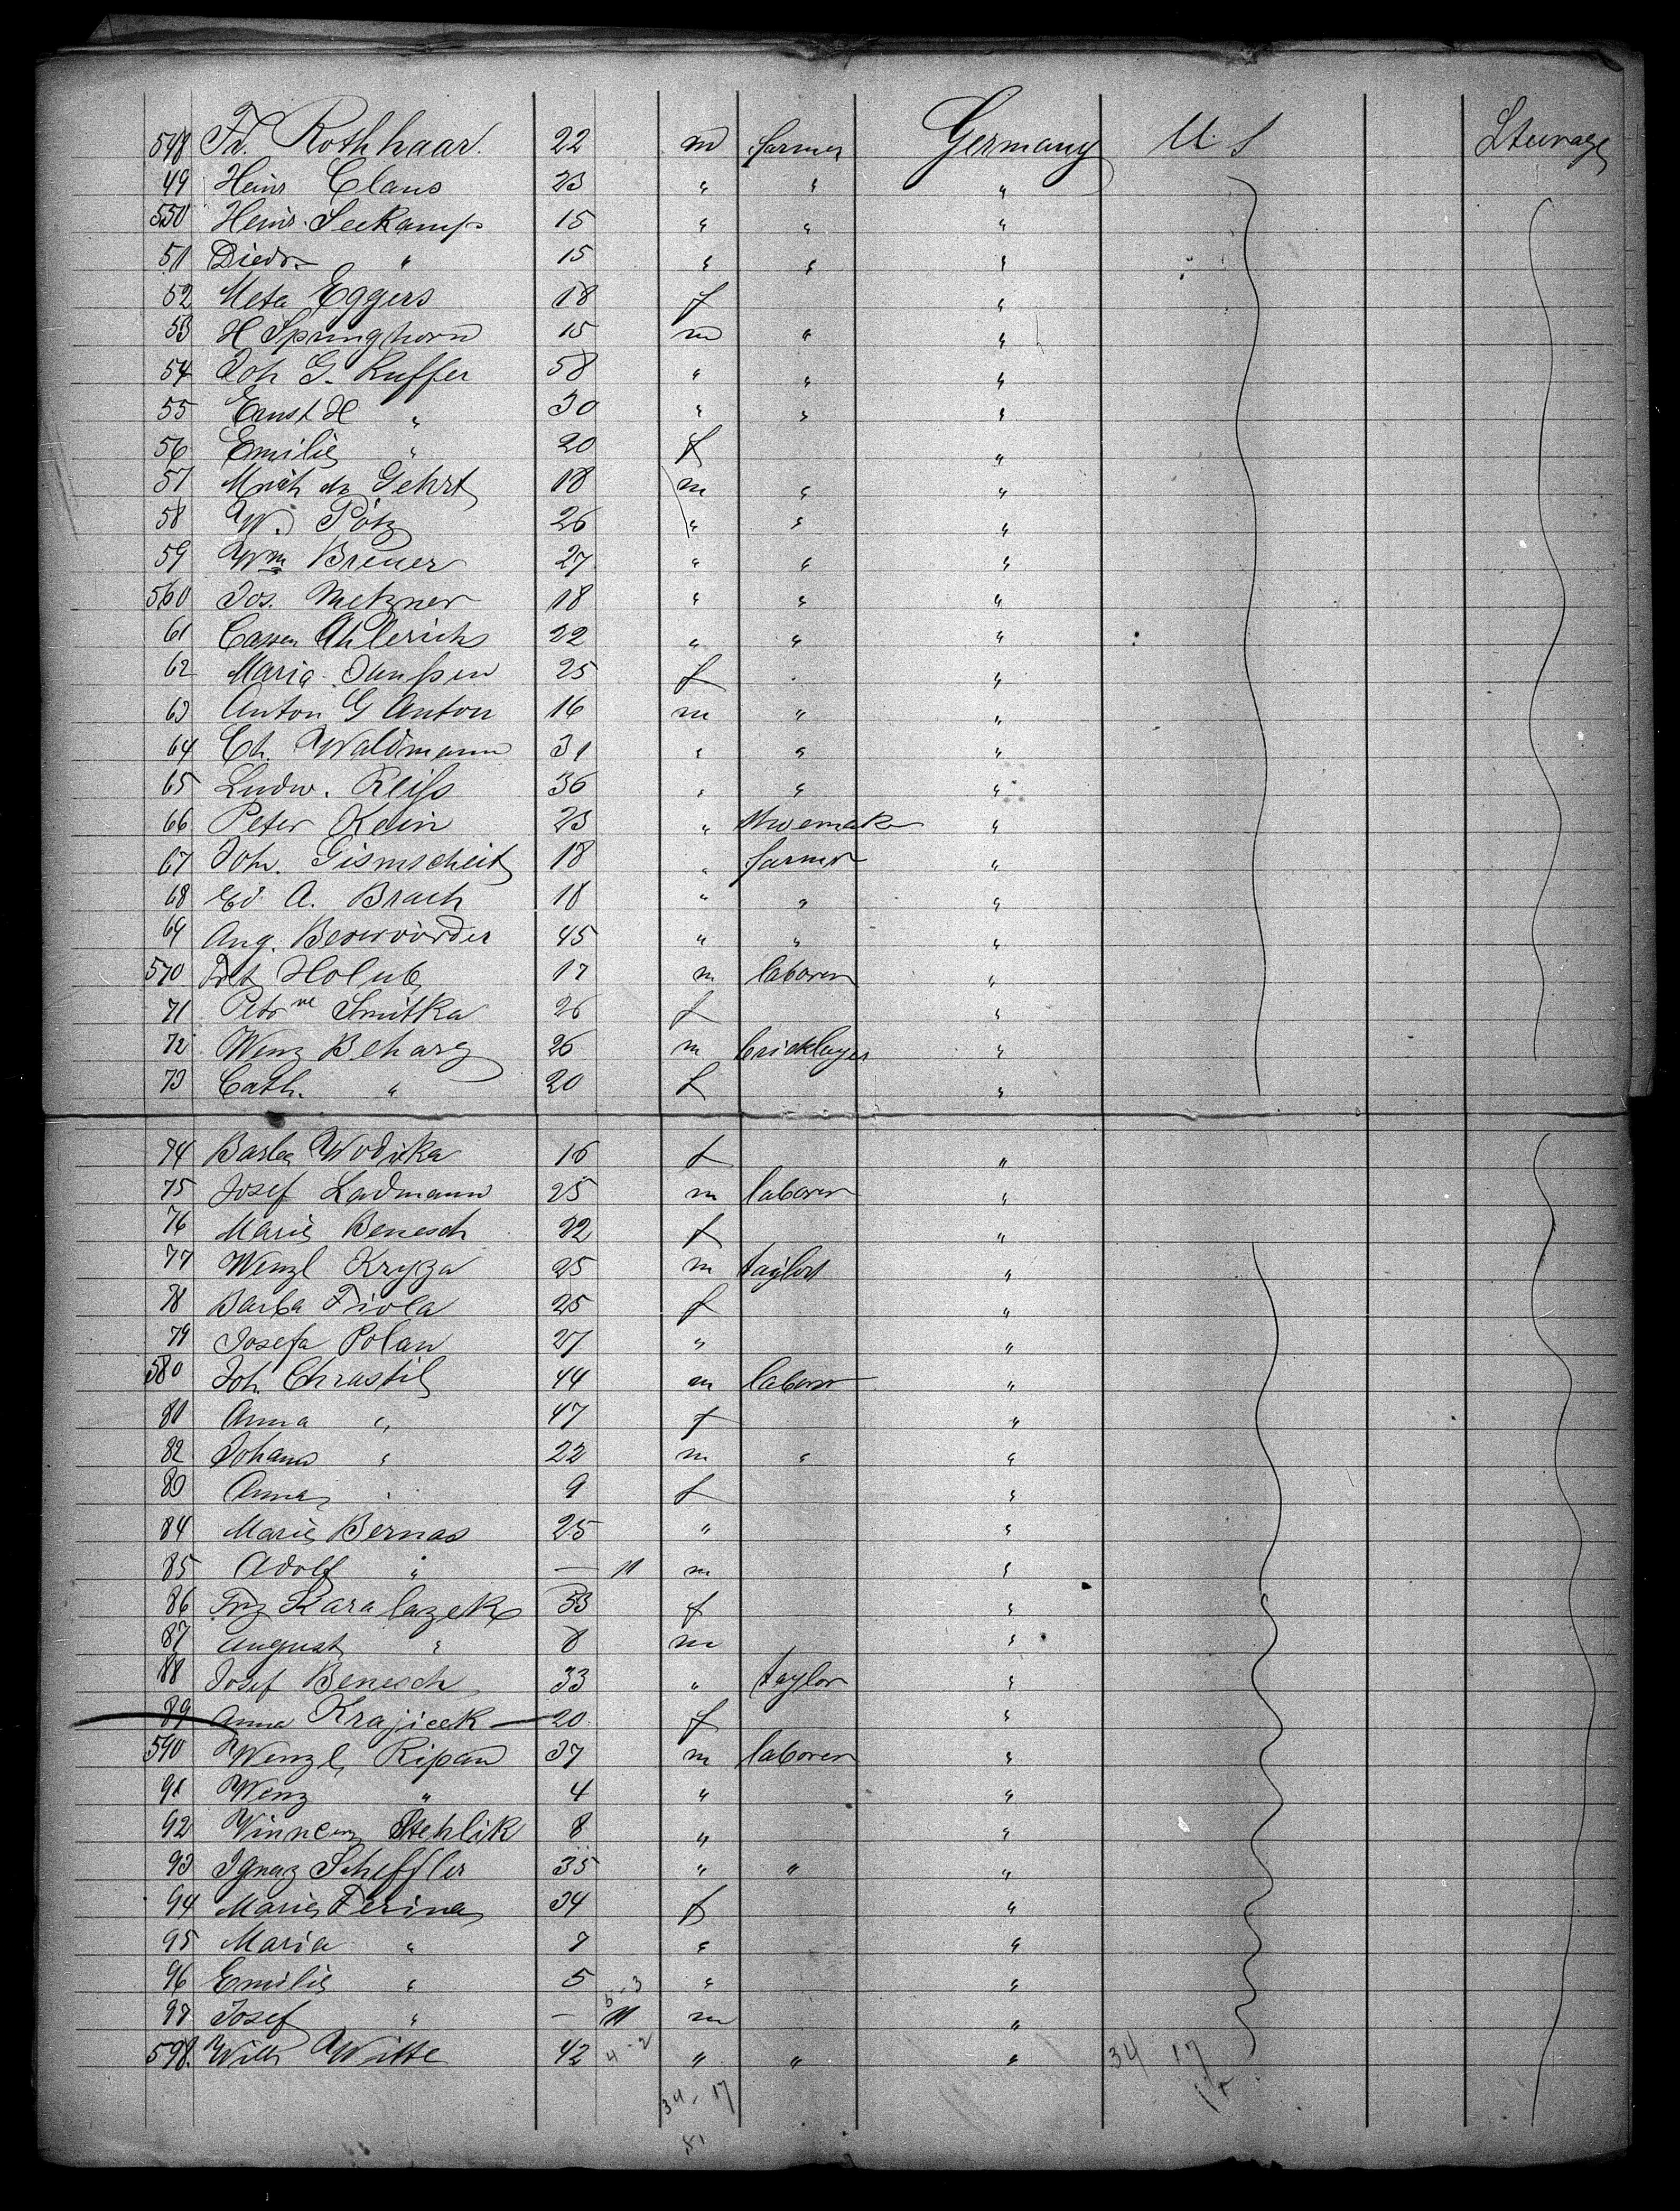 548 Fd. Rothhaar. 22 m farmer Germany U. S Steerage
49 Heinr Claus 23 " " "
550 Heinr. Seekamp 15 " " "
51 Diedr. " 15 " " "
52 Meta Eggers 18 f "
53 H Springhorn 15 m " "
54 Joh G. Ruffer 58 " " "
55 Ernst H " 30 " " "
56 Emilie " 20 f "
57 Mich Gehrt 18 m " "
58 W. Pötz 26 " " "
59 Wm Breuer 27 " " "
560 Jos. Metzner 18 " " "
61 Ahlerichs 22 " " "
62 Maria Janssen 25 f "
63 Anton G Anton 16 m " "
64 Ch. Waldmann 31 " " "
65 Ludw. Reiss 36 " " "
66 Peter Kein 23 " shoemak "
67 Joh. Gismscheit 18 " farmer "
68 Ed. A. Brach 18 " " "
69 Aug. 45 " " "
570 Holub 17 m laborer "
71 Smitka 26 f "
72 Wenz Beharz 26 m bricklayer "
73 Cath. " 20 f "
74 Barba Wodika 16 f "
75 Josef Ladmann 25 m laborer "
76 Marie Benesch 22 f "
77 Wenzl Kryza 25 m taylor "
78 Barba Fiola 25 f "
79 Josefa Polan 27 " "
580 Joh. Chrastil 44 m laborer "
81 Anna " 47 f "
82 Johann " 22 m " "
83 Anna " 9 f "
84 Marie Bernas 25 " "
85 Adolf " — 11 m "
86 Frz Karalazek 33 f "
87 August " 8 m "
88 Josef Benesch 33 " taylor "
89 Anna Krajicek 20 f "
590 Wenzl Ripan 37 m laborer "
91 Wenz " 4 " "
92 Vinnenz Stehlik 8 " "
93 Ignaz Scheffler 35 " " "
94 Marie Ferina 34 f "
95 Maria " 7 " "
96 Emilie " 5 " "
5-3
97 Josef " — 11 m "
598. Wilh Witte 42 4-2 " " " 34 17
34-17
51